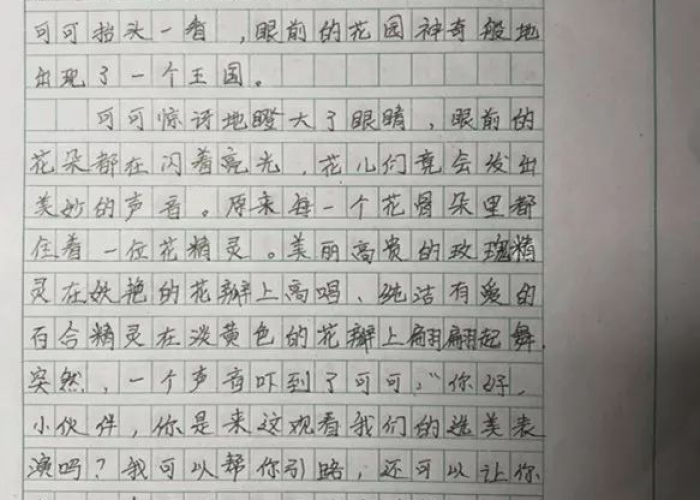 可可抬头一看,眼前的花园神奇般地
出现了一个王国。
可可惊讶地瞪大了眼睛,眼前的
花朵都在闪着亮光,花儿们竟会发出
美妙的声音。原来每一个花骨朵里都
住着一位花精灵。美丽高贵的玫瑰精
灵在妖艳的花瓣上高唱、纯洁有爱的
百合精灵在淡黄色的花瓣上翩翩起舞.
突然,一个声音吓到了可可:“你好,
小伙伴,你是来这观看我们的选美表
演吗?我可以帮你引路,还可以让你